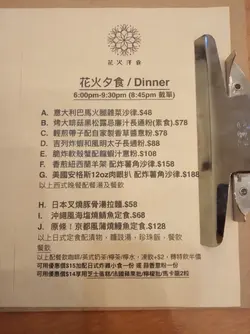 花火洋食
花火夕食 / Dinner
6:00pm-9:30pm (8:45pm 截單)
A. 意大利巴馬火腿雜菜沙律.$48
B. 烤大蒜菇黑松露忌廉汁長通粉(素食).$78
C. 輕煎帶子配自家製香草醬意粉.$78
D. 吉列炸蝦和風明太子長通粉.$88
E. 脆炸軟殼蟹配龍蝦汁意粉.$108
F. 香煎紐西蘭羊架 配炸薯角沙律.$158
G. 美國安格斯12oz肉眼扒 配炸薯角沙律.$188
以上西式晚餐配餐湯及餐飲
H. 日本叉燒豚骨湯拉麵.$58
I. 沖繩風海塩燒鯖魚定食.$68
J. 原條！京都風蒲燒鰻魚定食.$128
以上日式定食配漬物、麵豉湯、珍珠飯、餐飲
餐飲
以上配餐飲咖啡/英式奶茶/檸茶/檸水，凍飲+$2，轉特飲半價
可用優惠價$15加配日式炸雞小食一份 或 蒜香意粉一份
可用優惠價$14享用芝士蛋糕/法國蘋果批/檸檬批/馬卡龍2粒